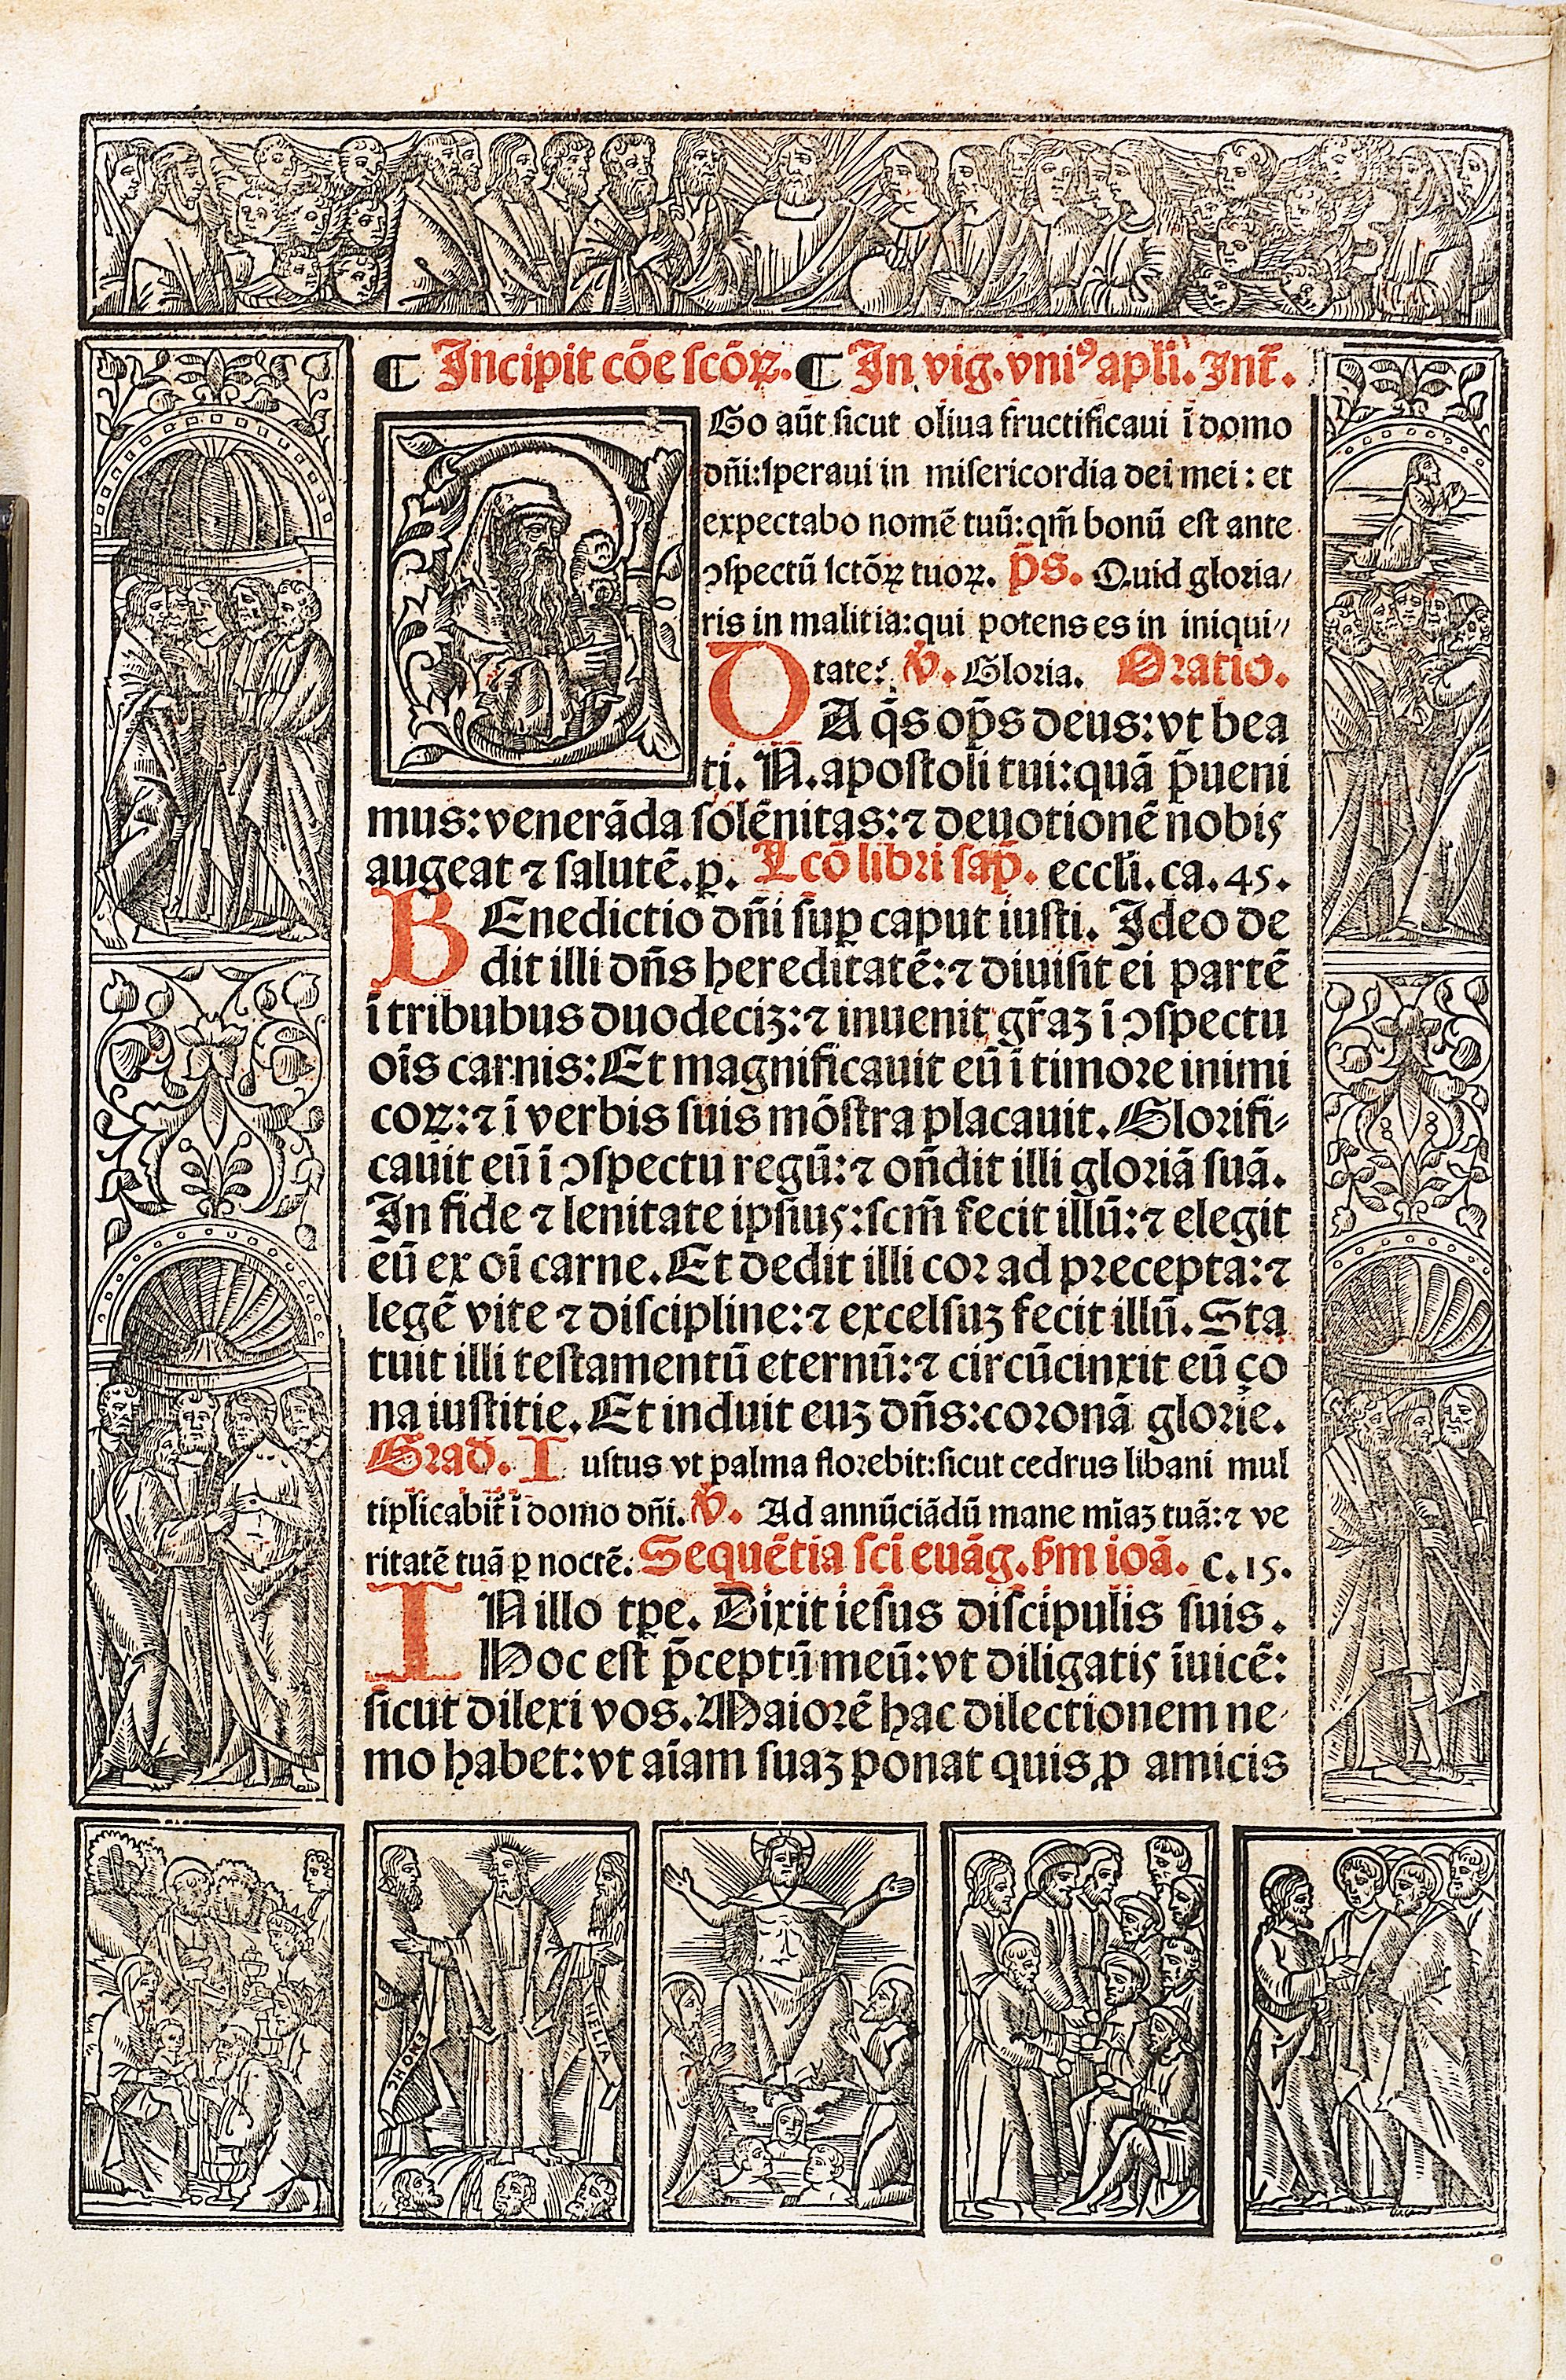 ¶ Incipit cōe scōꝝ. ¶ In vig. vniꝰ apłi. Int̄.
EGo aūt sicut oliua fructificaui ī domo
dn̄i: speraui in misericordia dei mei: et
expectabo nomē tuū: qm̄ bonū est ante
ↄspectū sctōꝝ tuoꝝ. p̄s. Quid gloria/
ris in malitia: qui potens es in iniqui//
tate: ℣. Gloria. Oratio.
DA q̄s op̄s deus: vt bea
ti. N. apostoli tui: quā p̄ueni
mus: venerāda solēnitas: ⁊ deuotionē nobis
augeat ⁊ salutē. ꝑ. Lcō libri sap̄. eccłi. ca. 45.
BEnedictio dn̄i suꝑ caput iusti. Ideo de
dit illi dn̄s hereditatē: ⁊ diuisit ei partē
ī tribubus duodeciꝫ: ⁊ inuenit gr̄aꝫ ī ↄspectu
oīs carnis: Et magnificauit eū ī timore inimi
coꝝ: ⁊ ī verbis suis mōstra placauit. Glorifi-
cauit eū ī ↄspectu regū: ⁊ on̄dit illi gloriā suā.
In fide ⁊ lenitate ipsius: scm̄ fecit illū: ⁊ elegit
eū ex oī carne. Et dedit illi cor ad precepta: ⁊
legē vite ⁊ discipline: ⁊ excelsuꝫ fecit illū. Sta
tuit illi testamentū eternū: ⁊ circūcinxit eū ço
na iustitie. Et induit euꝫ dn̄s: coronā glorie.
Grad. Iustus vt palma florebit: sicut cedrus libani mul
tiplicabit̄ ī domo dn̄i. ℣. Ad annūciādū mane mīaꝫ tuā: ⁊ ve
ritatē tuā ꝑ noctē. Sequētia scī euāg. ẜm ioā. C. 15.
IN illo tꝑe. Dixit iesus discipulis suis.
Hoc est p̄ceptū meū: vt diligatis īuicē:
sicut dilexi vos. Maiorē hac dilectionem ne
mo habet: vt aīam suaꝫ ponat quis ꝓ amicis
ENOHC
HELIA